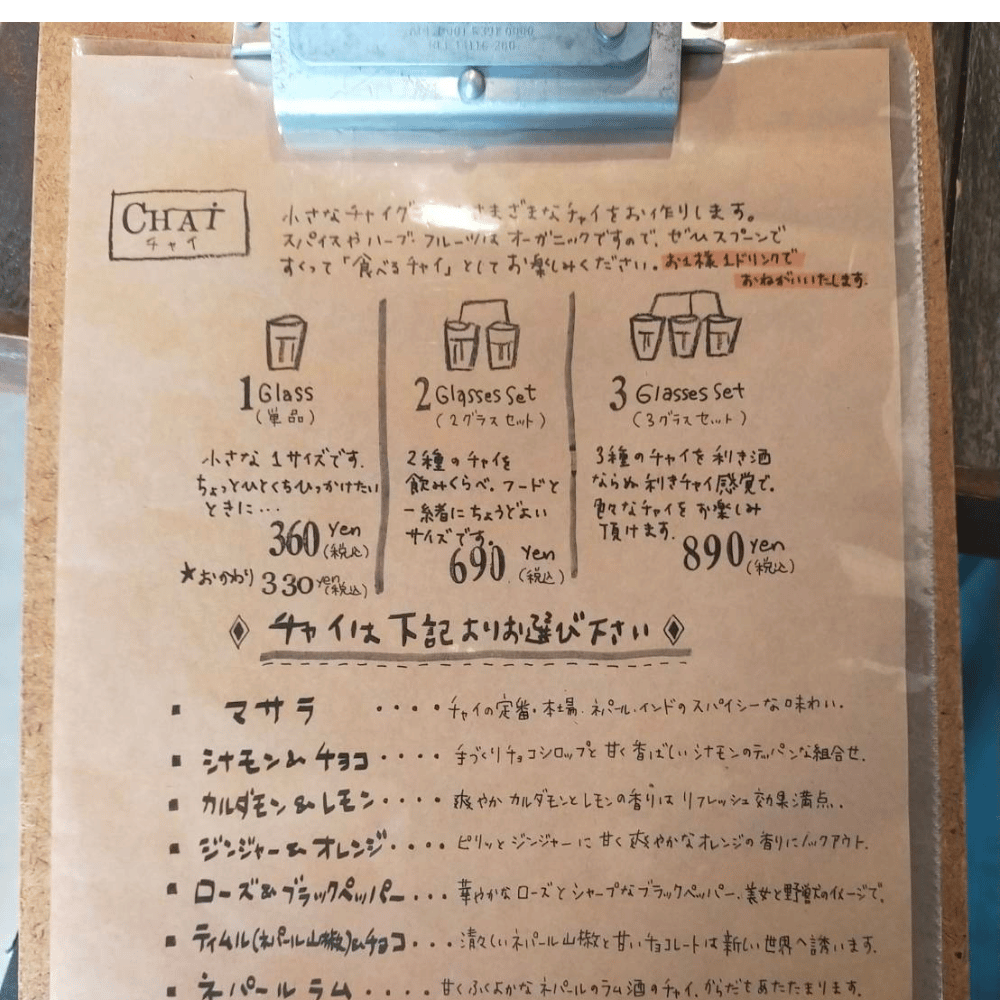 CHAI
チャイ
小さなチャイグ さまざまなチャイをお作りします。
スパイスやハーブ・フルーツはオーガニックですので、ぜひスプーンで
すくって「食べるチャイ」としてお楽しみください。お1人様1ドリンクで
おねがいいたします。
1 Glass
(単品)
小さな1サイズです。
ちょっとひとくちひっかけたい
ときに…
360 yen
(税込)
★おかわり 330 yen(税込)
2 Glasses Set
(2グラスセット)
2種のチャイを
飲みくらべ。フードと
一緒にちょうどよい
サイズです。
690 yen
(税込)
3 Glasses Set
(3グラスセット)
3種のチャイを利き酒
ならぬ利きチャイ感覚で。
色々なチャイをお楽しみ
頂けます。
890 yen
(税込)
チャイは下記よりお選び下さい
■ マサラ ････チャイの定番。本場、ネパール・インドのスパイシーな味わい。
■ シナモン&チョコ････手づくりチョコシロップと甘く香ばしいシナモンのテッパンな組合せ。
■ カルダモン&レモン････爽やかカルダモンとレモンの香りはリフレッシュ効果満点。
■ ジンジャー&オレンジ････ピリッとジンジャーに甘く爽やかなオレンジの香りにノックアウト。
■ ローズ&ブラックペッパー･･･華やかなローズとシャープなブラックペッパー、美女と野獣のイメージで。
■ ティムル(ネパール山椒)&チョコ･･･清々しいネパール山椒と甘いチョコレートは新しい世界へ誘います。
■ ネパールラム････甘くふくよかなネパールのラム酒のチャイ。からだもあたたまります。